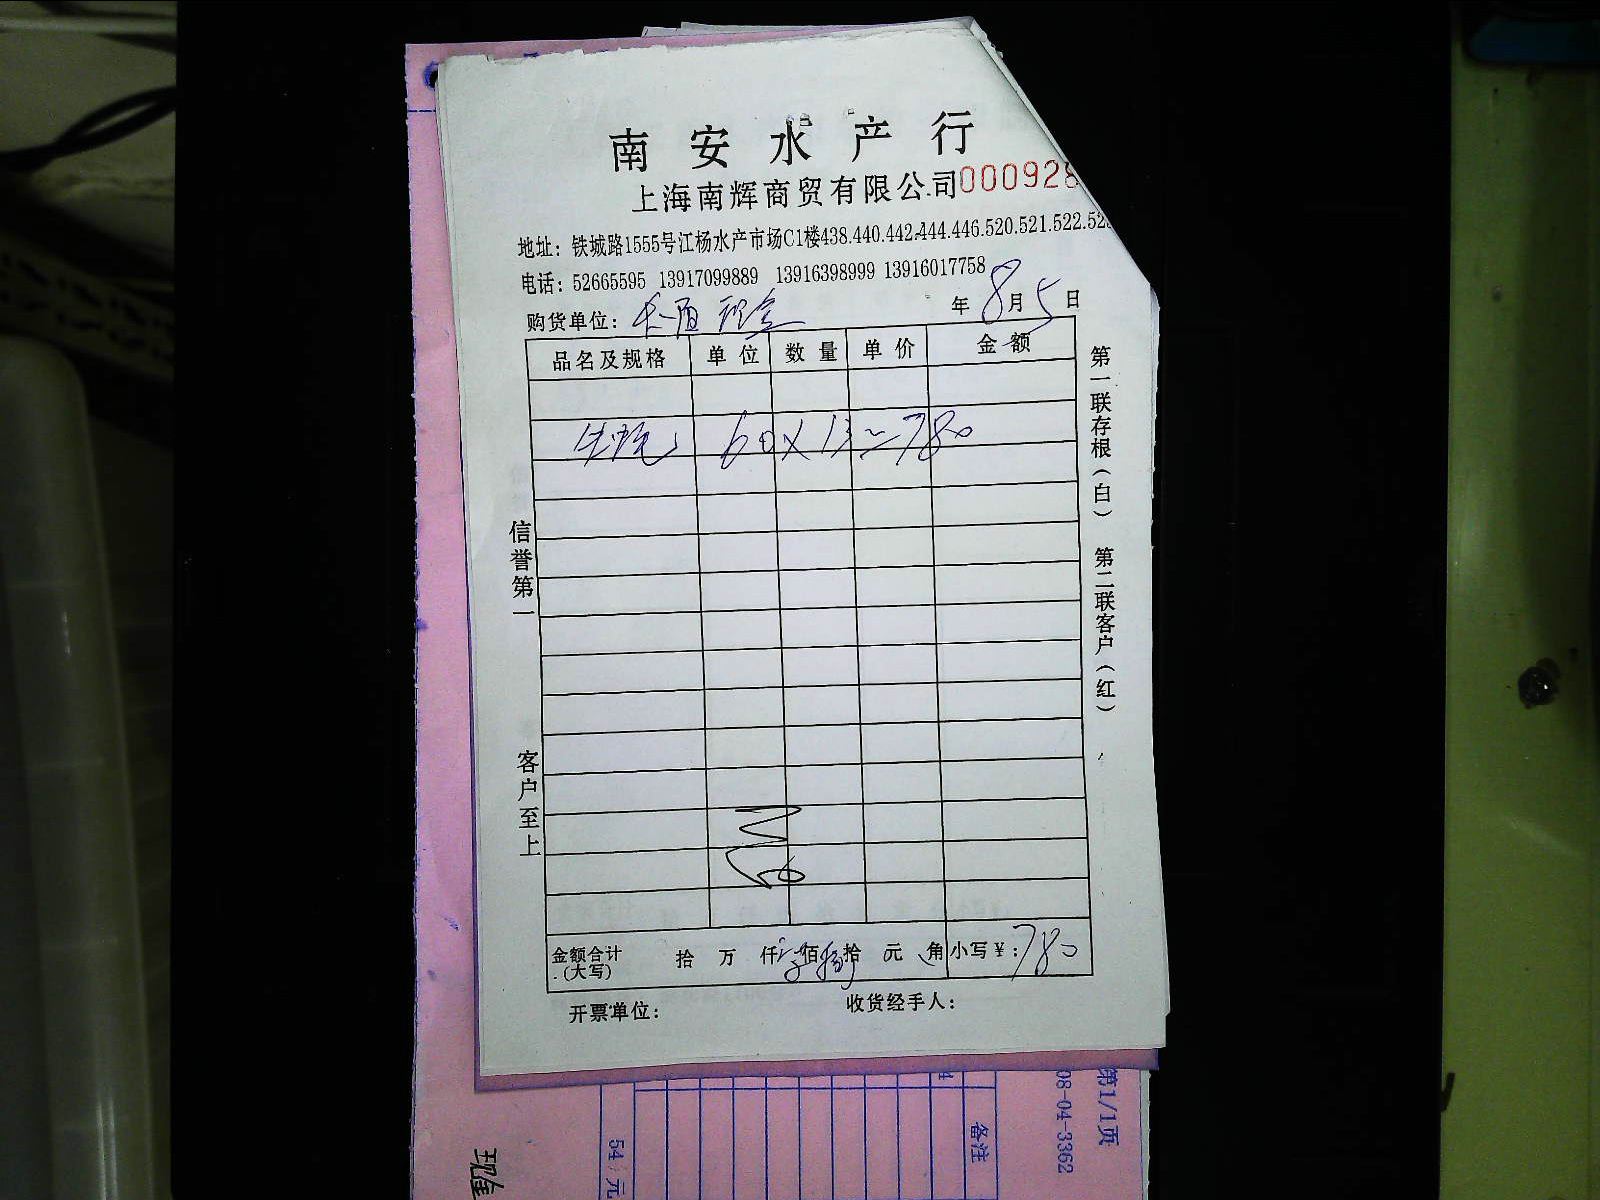 南安水产行
上海南辉商贸有限公司 000928
地址：铁城路1555号江杨水产市场C1楼438.440.442.444.446.520.521.522.52
电话：52665595 13917099889 13916398999 13916017758
购货单位： 现金 年 8 月 5 日
品名及规格 单位 数量 单价 金额
60 X 13 = 780
金额合计 (大写) 拾 万 仟 佰 拾 元 角 小写￥：780
开票单位： 收货经手人：
信誉第一
客户至上
第一联存根（白） 第二联客户（红）
第1/1页
08-04-3362
备注
54 元
现金